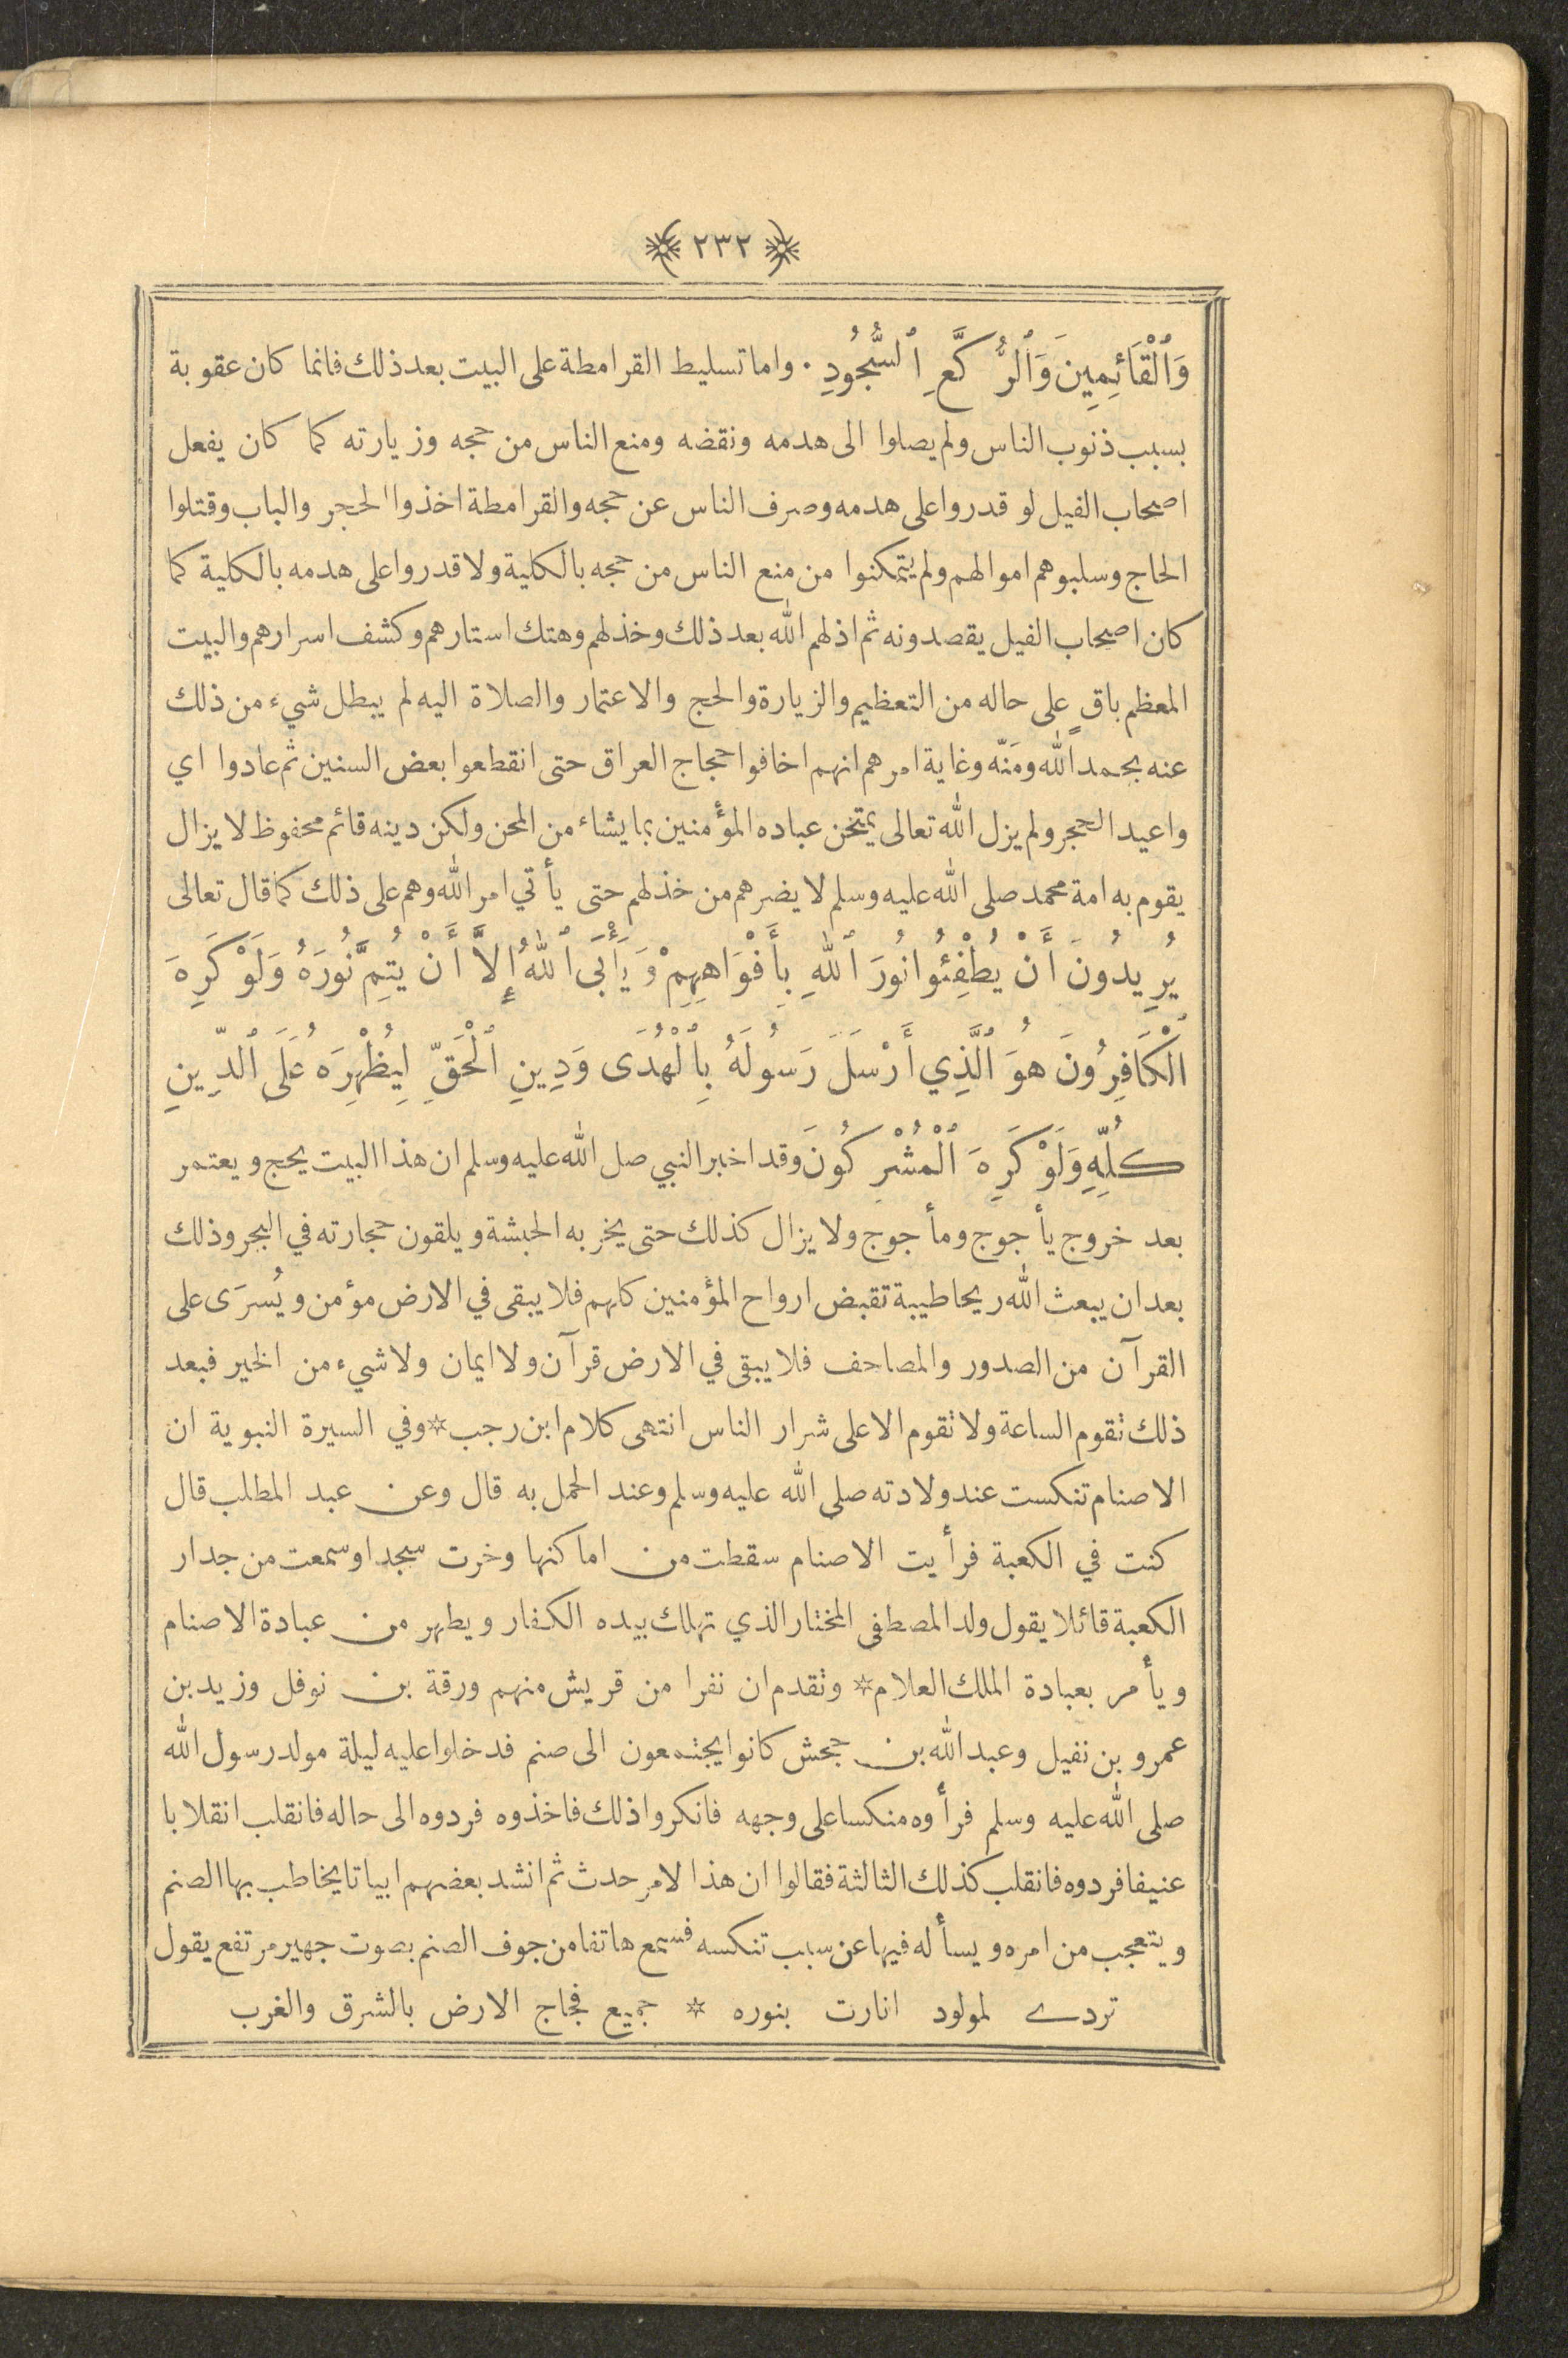 ٢٣٢
وَٱلْقَائِمِينَ وَٱلرُّكَّعِ ٱلسُّجُودِ . واما تسليط القرامطة على البيت بعد ذلك فانما كان عقوبة
بسبب ذنوب الناس ولم يصلوا الى هدمه ونقضه ومنع الناس من حجه وزيارته كما كان يفعل
اصحاب الفيل لو قدروا على هدمه وصرف الناس عن حجه والقرامطة اخذوا الحجر والباب وقتلوا
الحاج وسلبوهم اموالهم ولم يتمكنوا من منع الناس من حجه بالكلية ولا قدروا على هدمه بالكلية كما
كان اصحاب الفيل يقصدونه ثم اذلهم الله بعد ذلك وخذلهم وهتك استارهم وكشف اسرارهم والبيت
المعظم باقٍ على حاله من التعظيم والزيارة والحج والاعتمار والصلاة اليه لم يبطل شيء من ذلك
عنه بحمد الله ومَنّه وغاية امرهم انهم اخافوا حجاج العراق حتى انقطعوا بعض السنين ثم عادوا اي
واعيد الحجر ولم يزل الله تعالى يمتحن عباده المؤمنين بما يشاء من المحن ولكن دينه قائم محفوظ لا يزال
يقوم به امة محمد صلى الله عليه وسلم لا يضرهم من خذلهم حتى يأتي امر الله وهم على ذلك كما قال تعالى
يُرِيدُونَ أَنْ يُطْفِئُوا نُورَ ٱللهِ بِأَفْوَاهِهِمْ وَيَأْبَى ٱللهُ إِلَّا أَنْ يُتِمَّ نُورَهُ وَلَوْ كَرِهَ
ٱلْكَافِرُونَ هُوَ ٱلَّذِي أَرْسَلَ رَسُولَهُ بِٱلْهُدَى وَدِينِ ٱلْحَقِّ لِيُظْهِرَهُ عَلَى ٱلدِّينِ
كُلِّهِ وَلَوْ كَرِهَ ٱلْمُشْرِكُونَ وقد اخبر النبي صل الله عليه وسلم ان هذا البيت يحج ويعتمر
بعد خروج يأجوج ومأجوج ولا يزال كذلك حتى يخربه الحبشة ويلقون حجارته في البحر وذلك
بعد ان يبعث الله ريحا طيبة تقبض ارواح المؤمنين كلهم فلا يبقى في الارض مؤمن ويُسرَى على
القرآن من الصدور والمصاحف فلا يبقى في الارض قرآن ولا ايمان ولا شيء من الخير فبعد
ذلك تقوم الساعة ولا تقوم الا على شرار الناس انتهى كلام ابن رجب * وفي السيرة النبوية ان
الاصنام تنكست عند ولادته صلى الله عليه وسلم وعند الحمل به قال وعن عبد المطلب قال
كنت في الكعبة فرأيت الاصنام سقطت من اماكنها وخرت سجدا وسمعت من جدار
الكعبة قائلا يقول ولد المصطفى المختار الذي تهلك بيده الكفار ويطهر من عبادة الاصنام
ويأمر بعبادة الملك العلام * وتقدم ان نفرا من قريش منهم ورقة بن نوفل وزيد بن
عمرو بن نفيل وعبد الله بن جحش كانوا يجتمعون الى صنم فدخلوا عليه ليلة مولد رسول الله
صلى الله عليه وسلم فرأوه منكسا على وجهه فانكروا ذلك فاخذوه فردوه الى حاله فانقلب انقلابا
عنيفا فردوه فانقلب كذلك الثالثة فقالوا ان هذا لامر حدث ثم انشد بعضهم ابياتا يخاطب بها الصنم
ويتعجب من امره ويسأله فيها عن سبب تنكسه فسمع هاتفا من جوف الصنم بصوت جهير مرتفع يقول
تردى لمولود انارت بنوره * جميع فجاج الارض بالشرق والغرب